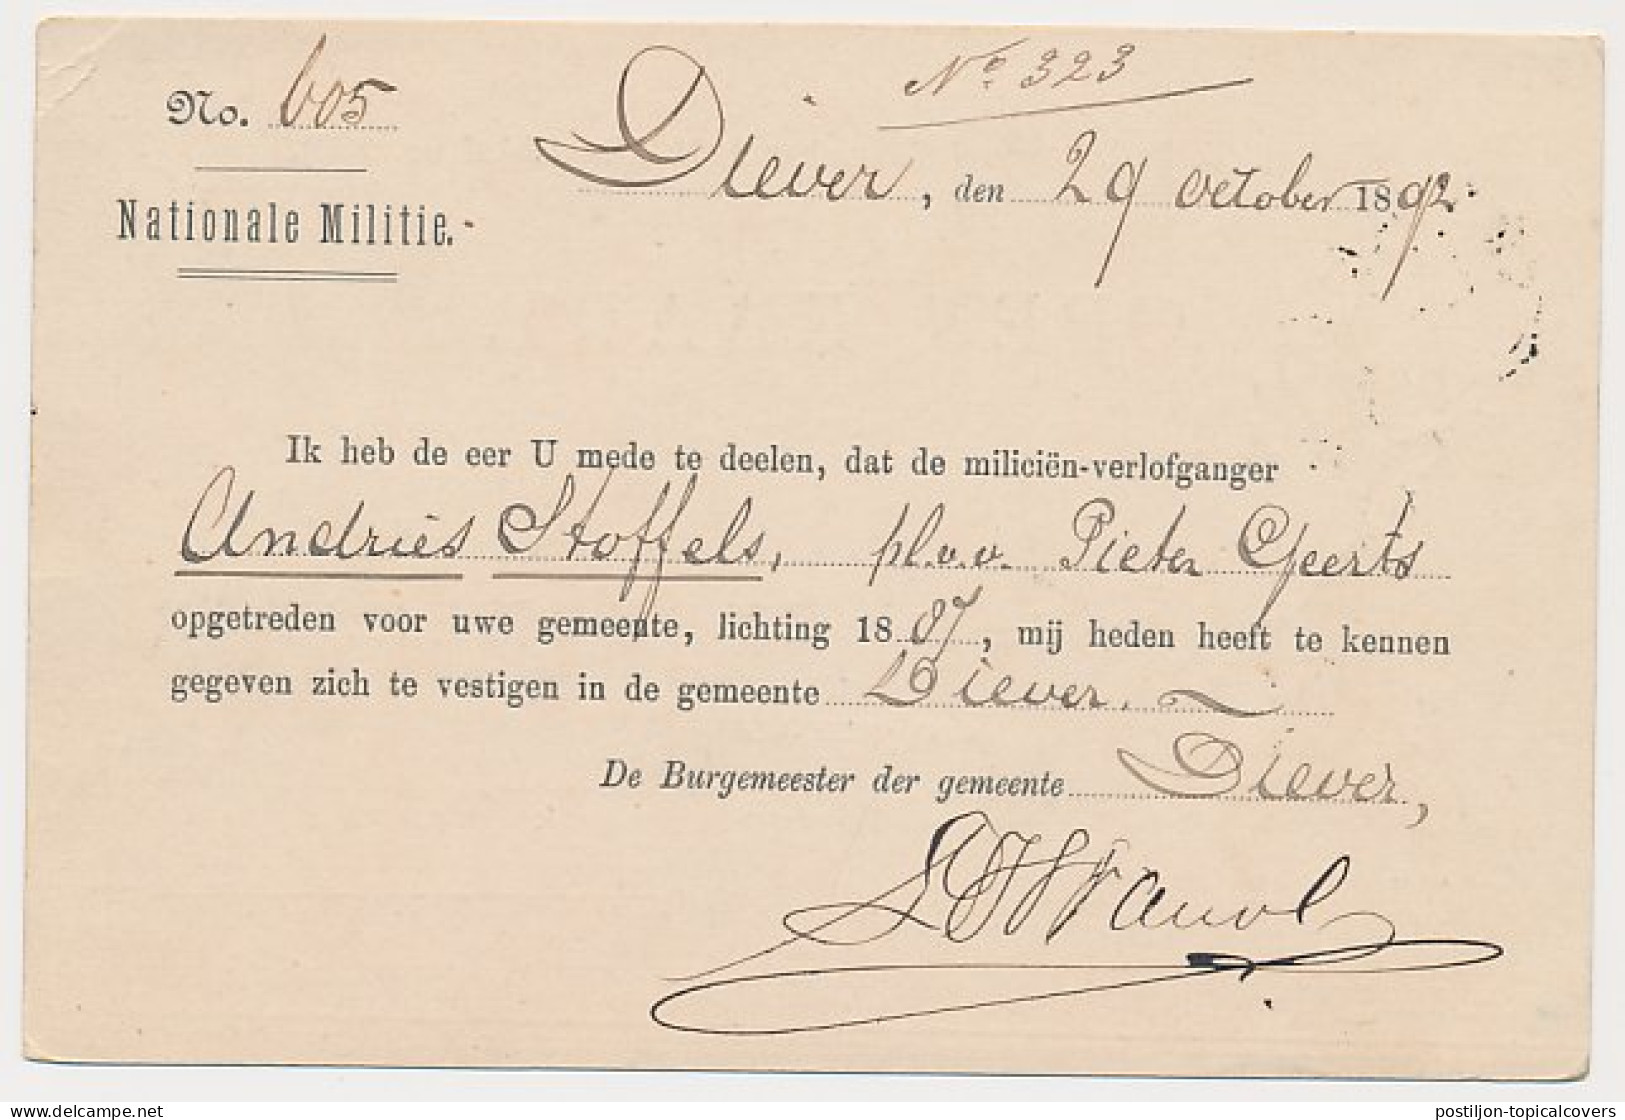 No. 605
No 323
Diever, den 29 October 1892.
Nationale Militie.
Ik heb de eer U mede te deelen, dat de miliciën-verlofganger
Andries Stoffels, pl.v.v. Pieter Geerts
opgetreden voor uwe gemeente, lichting 1887, mij heden heeft te kennen
gegeven zich te vestigen in de gemeente Diever.
De Burgemeester der gemeente Diever,
postiljon-topicalcovers
delcampe.net